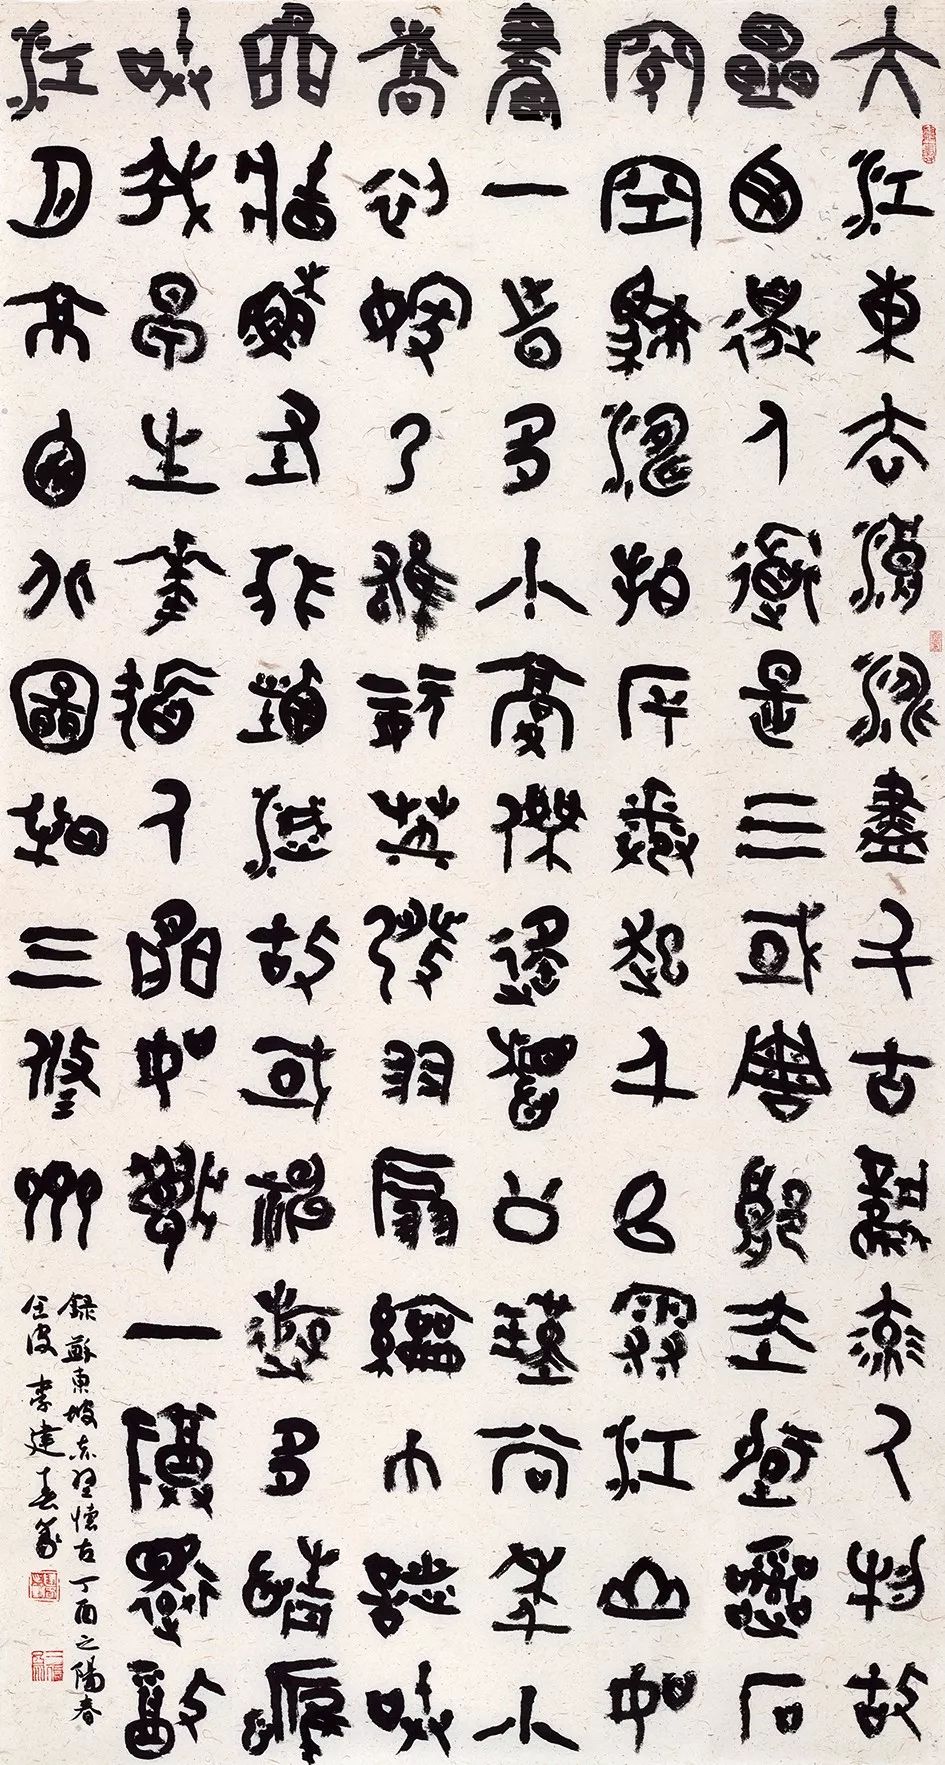 大江東去浪淘盡千古風流人物故
壘西邊人道是三國周郎赤壁亂石
穿空驚濤拍岸捲起千堆雪江山如
畫一時多少豪傑遙想公瑾當年小
喬初嫁了雄姿英發羽扇綸巾談笑
間檣櫓灰飛煙滅故國神遊多情應
笑我早生華髮人間如夢一尊還酹
江月
錄蘇東坡赤壁懷古丁酉之陽春
李建春篆